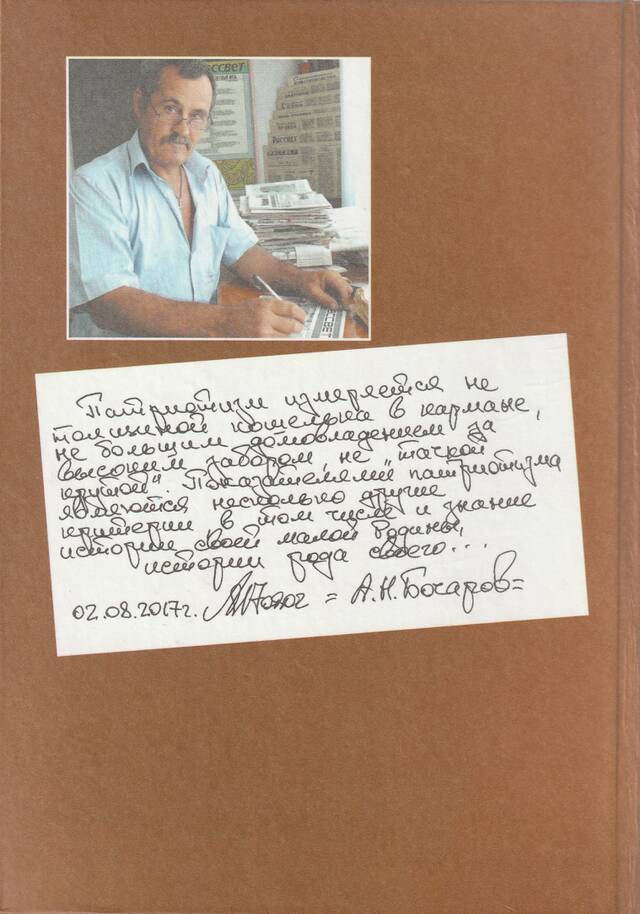 РАССВЕТ
Патриотизм измеряется не
толщиной кошелька в кармане,
не большим домовладением за
высоким забором, не "тачкой
крутой". Показателями патриотизма
являются несколько другие
критерии в том числе и знание
истории своей малой Родины,
истории рода своего...
02.08.2017г. = А.Н.Бочаров=